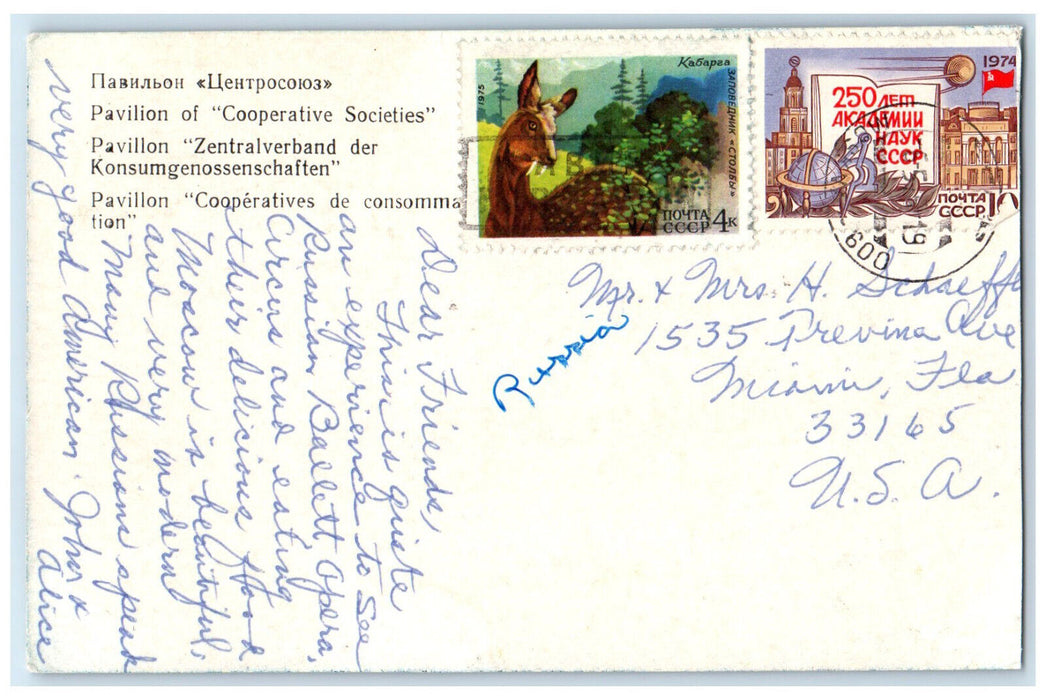 Павильон «Центросоюз»
Pavilion of "Cooperative Societies"
Pavillon "Zentralverband der
Konsumgenossenschaften"
Pavillon "Coopératives de consomma
tion"
Кабарга
1975
ЗАПОВЕДНИК «СТОЛБЫ»
ПОЧТА
СССР 4к
1974
250 ЛЕТ
АКАДЕМИИ
НАУК
СССР
ПОЧТА
СССР 10
19
600
Dear Friends,
This is quite
an experience to see
Russian Ballet Opera,
Circus and eating
their delicious food
Moscow is beautiful,
and very modern
Many Russians speak
very good American. John &
Alice
Russia
Mr. & Mrs. H. Schaeff
1535 Trevina Ave
Miami, Fla
33165
U.S.A.